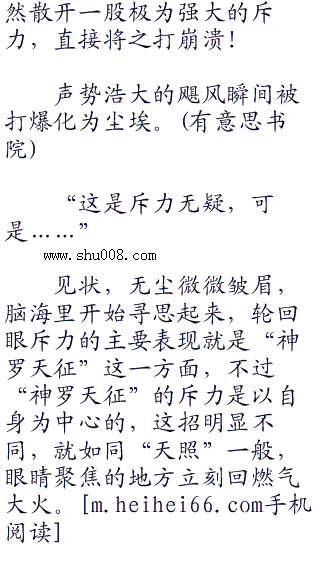 然散开一股极为强大的斥
力，直接将之打崩溃！
声势浩大的飓风瞬间被
打爆化为尘埃。(有意思书
院)
“这是斥力无疑，可
是……”
www.shu008.com
见状，无尘微微皱眉，
脑海里开始寻思起来，轮回
眼斥力的主要表现就是“神
罗天征”这一方面，不过
“神罗天征”的斥力是以自
身为中心的，这招明显不
同，就如同“天照”一般，
眼睛聚焦的地方立刻回燃气
大火。[m.heihei66.com手机
阅读]